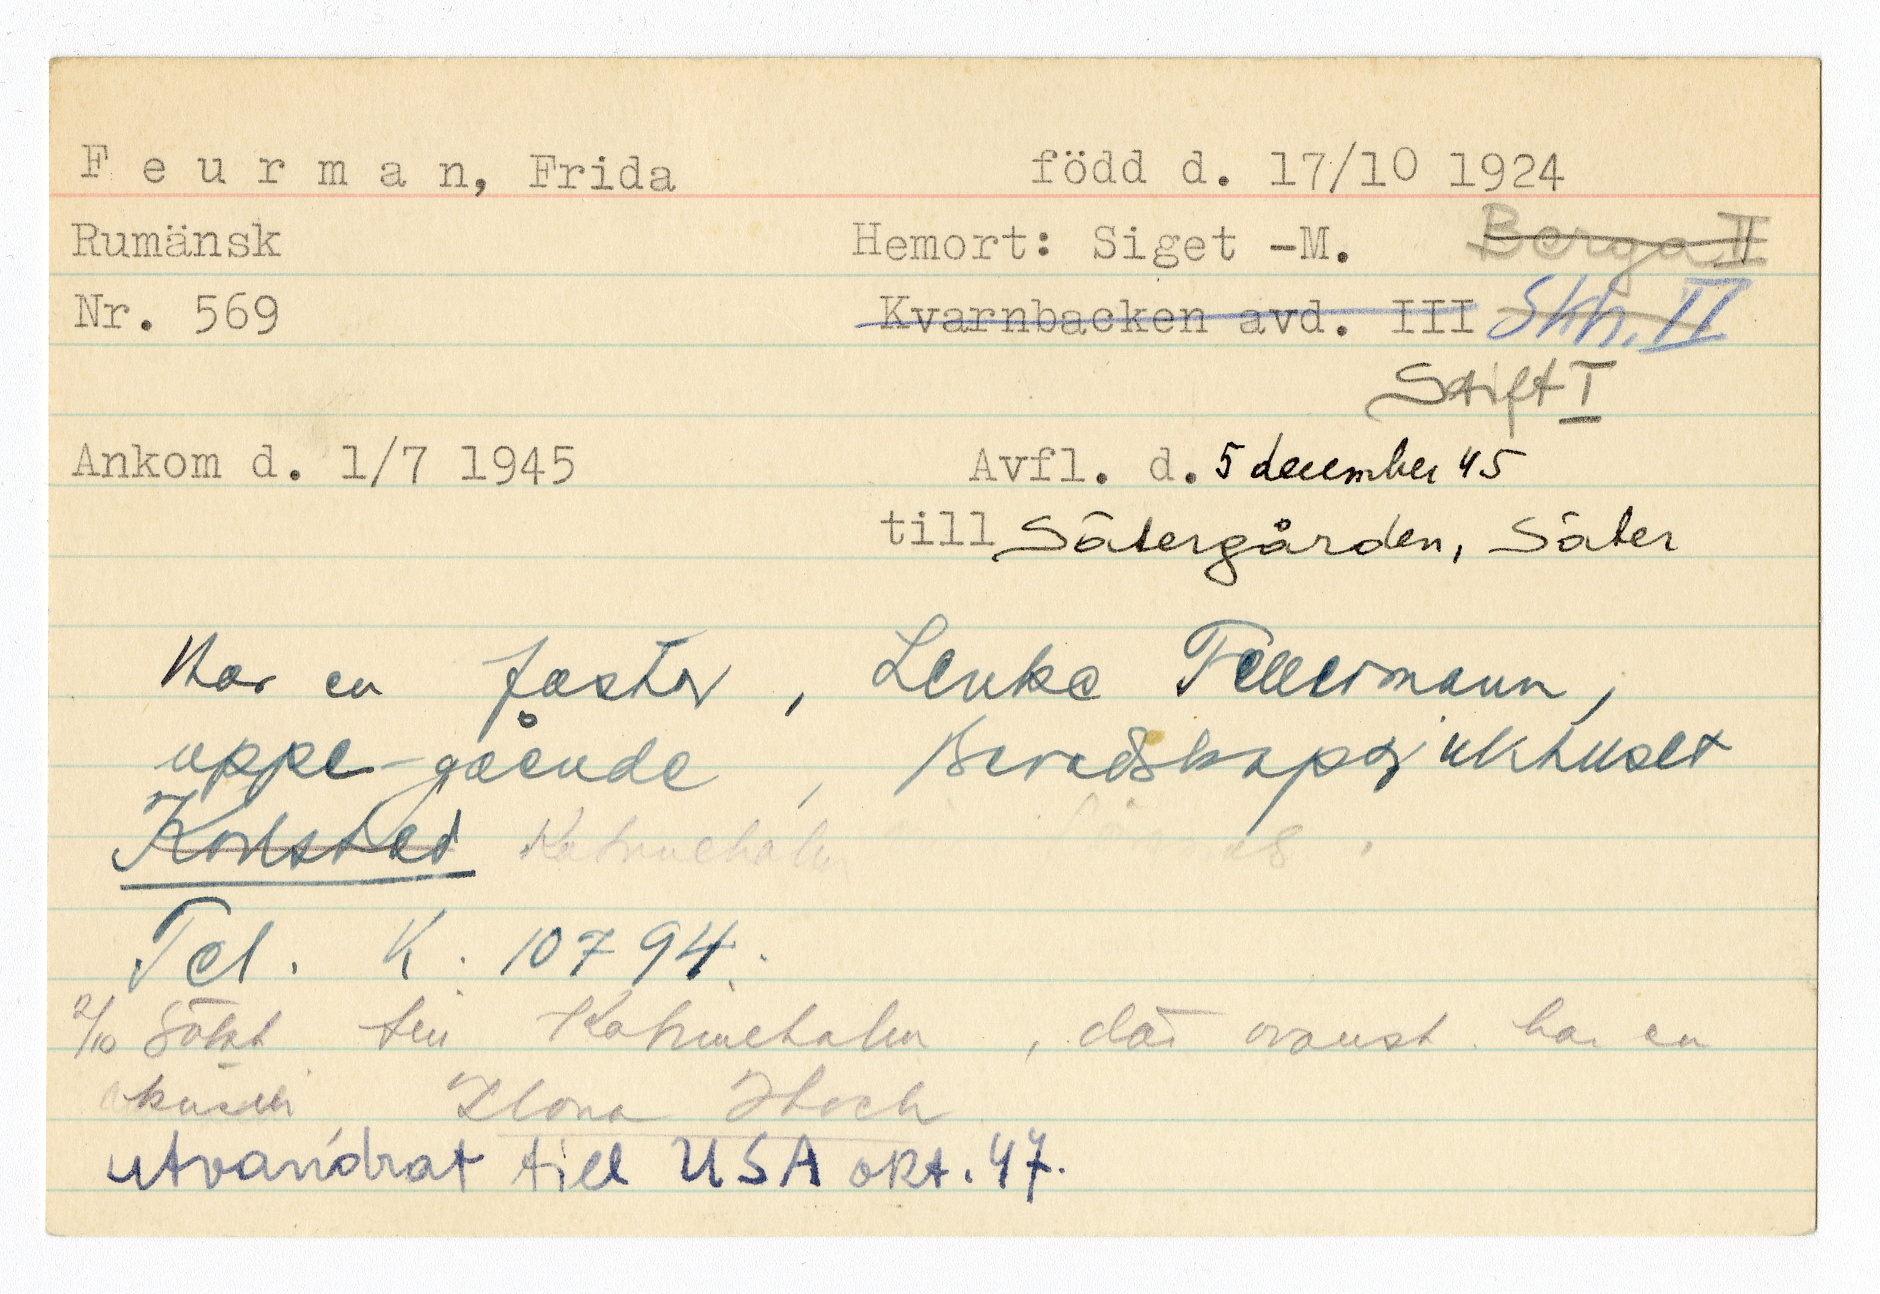 F e u r m a n, Frida född d. 17/10 1924
Rumänsk Hemort: Siget -M. Berga II
Nr. 569 Kvarnbacken avd. III Skh. II
Stift I
Ankom d. 1/7 1945 Avfl. d. 5 december 45
till Sätergården, Säter
Har en faster, Lenke Fellermann,
uppe-gående, Beredskapssjukhuset
Karlstad Katrineholm
Tel. K. 10794.
2/10 Sökt till Katrineholm, där ovanst. har en
kusin Ilona Stoch
utvandrat till USA okt. 47.